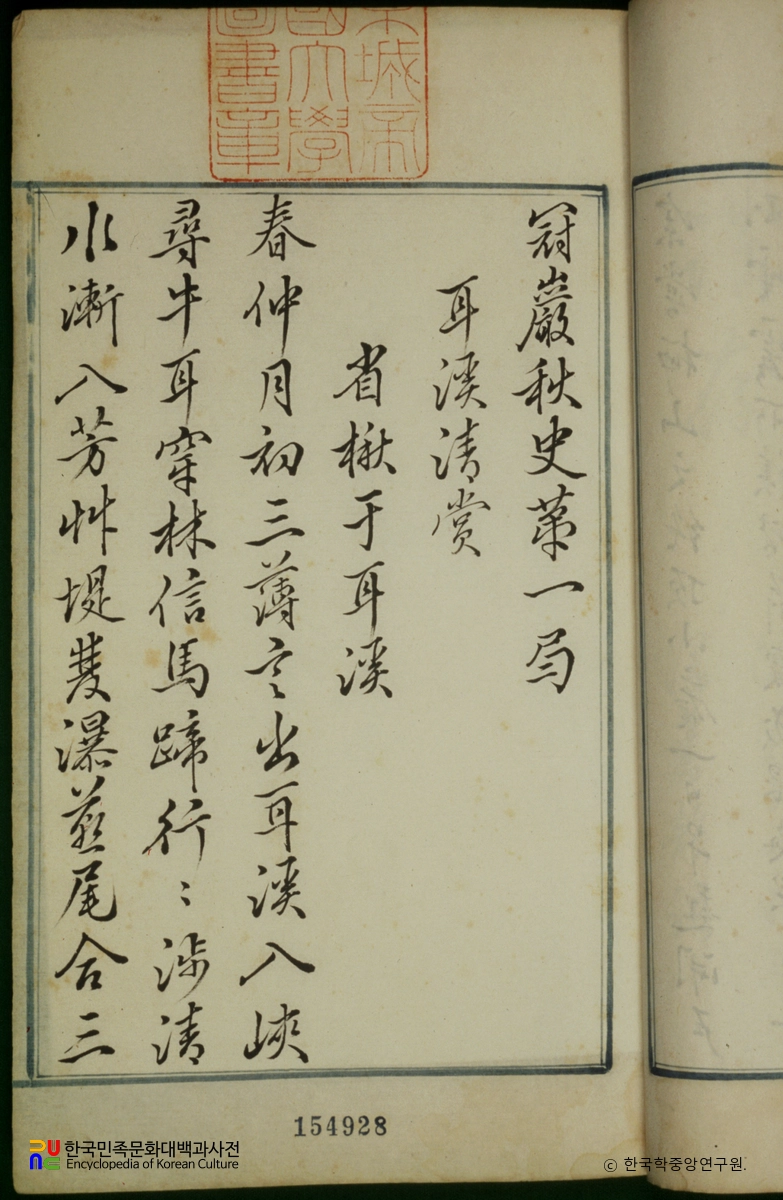 京城帝
國大學
圖書章
冠巖秋史苐一局
耳溪清賞
省楸于耳溪
春仲月初三薄言出耳溪入峽
尋牛耳穿林信馬蹄行〻涉清
水漸入芳艸堤雙瀑燕尾合三
154928
PUNE 한국민족문화대백과사전
Encyclopedia of Korean Culture
ⓒ 한국학중앙연구원.